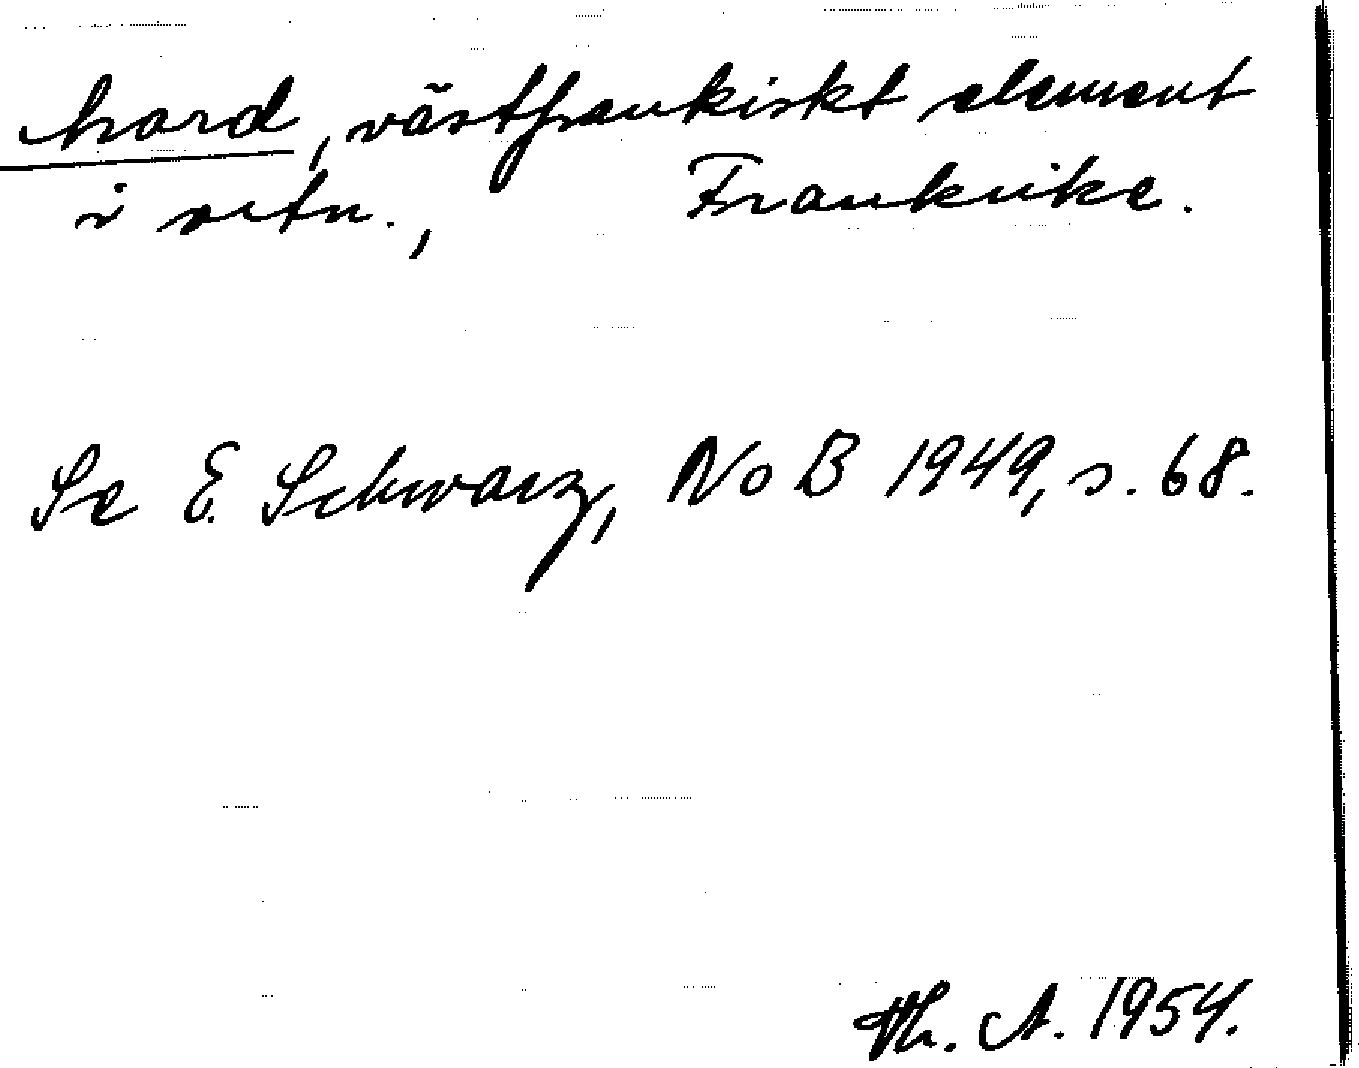 hard, västfrankiskt element
i ortn., Frankrike.
Se E. Schwarz, NoB 1949, s. 68.
Th. A. 1954.